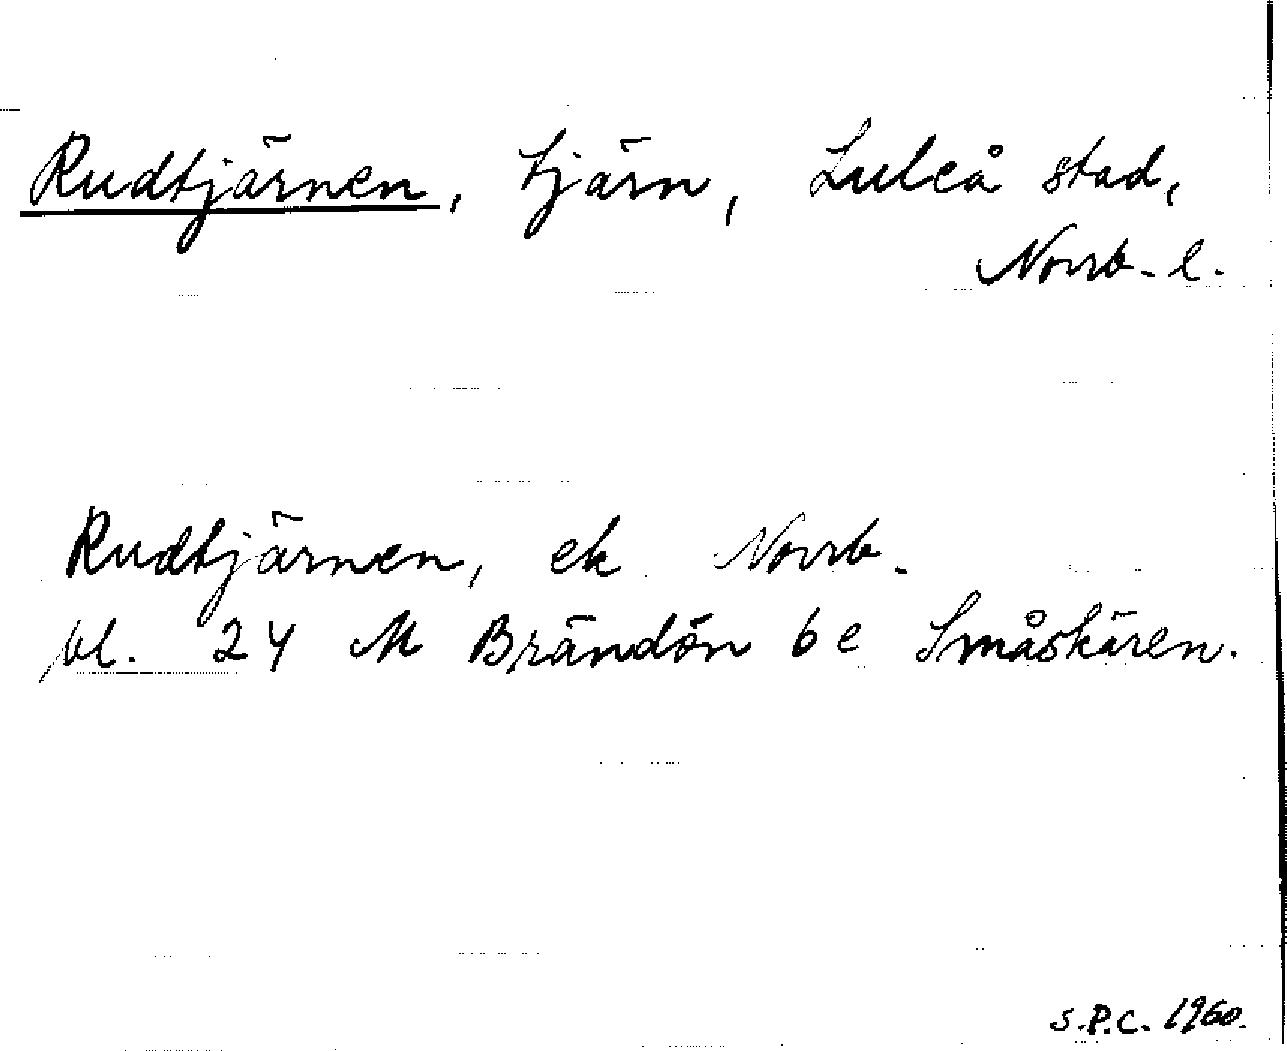 Rudtjärnen, tjärn, Luleå stad,
Norrb. l.
Rudtjärnen, ek Norrb.
bl. 24 M Brändön 6e Småskären.
S.P.C. 1960.